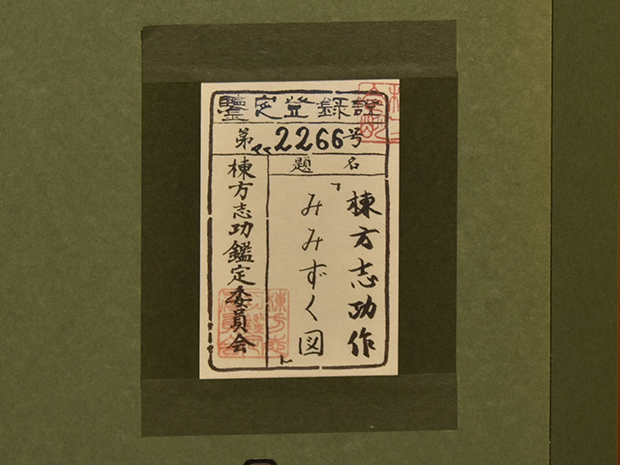 鑑定登録証
第2266号
題名
棟方志功作
「みみずく図」
棟方志功鑑定委員会